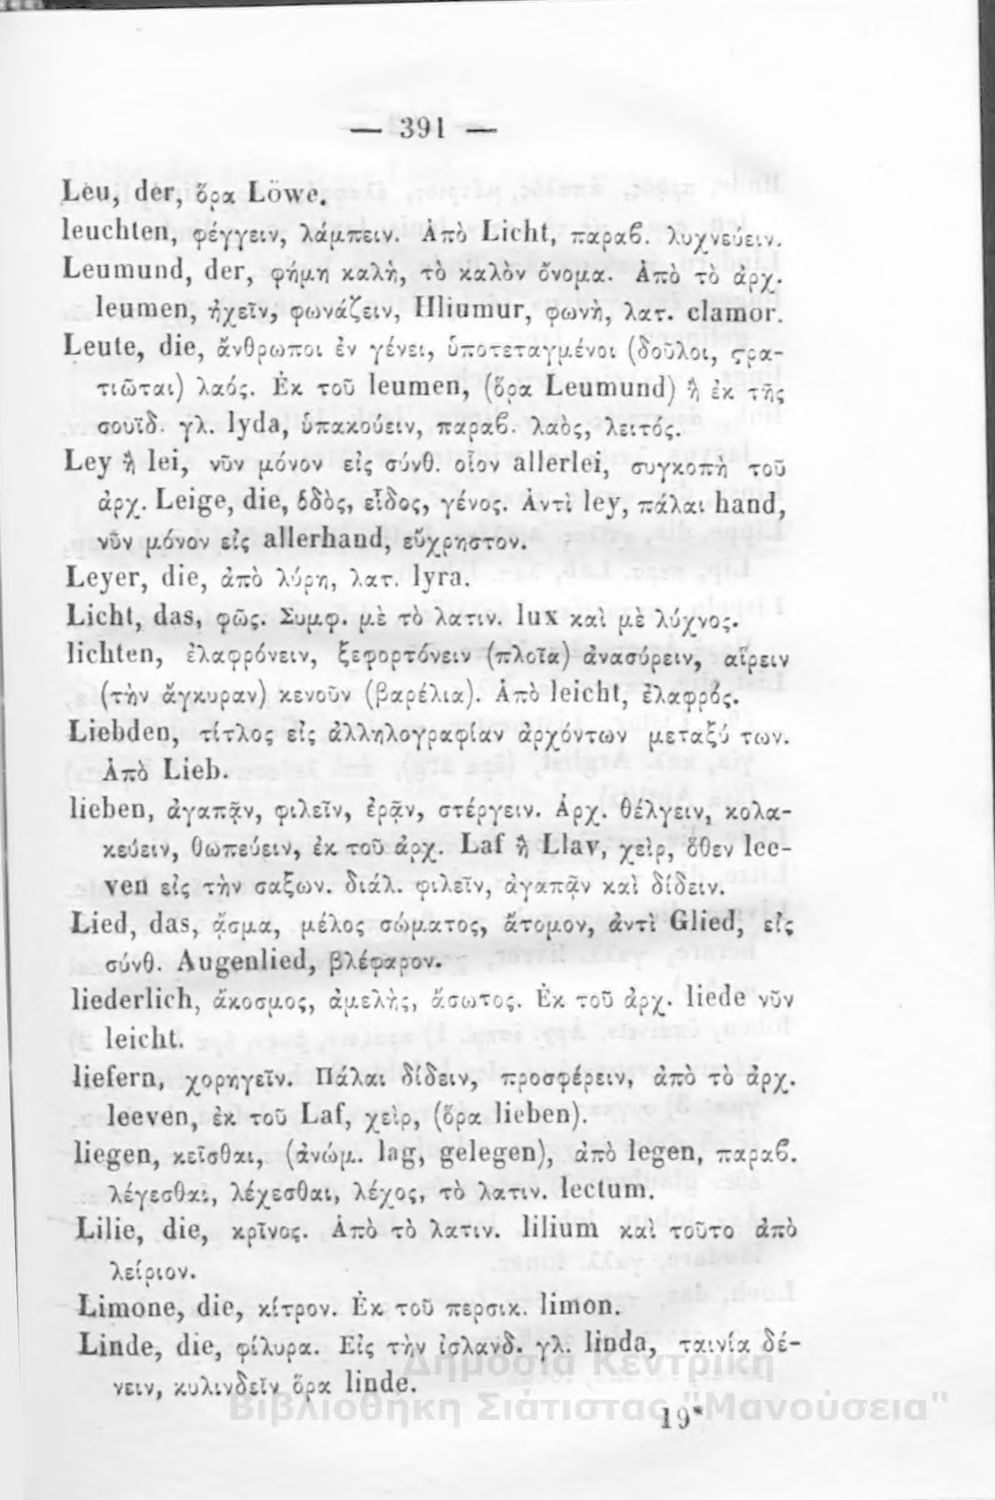 — 391 —
Leu, der, ὅρα Löwe.
leuchten, φέγγειν, λάμπειν. Ἀπὸ Licht, παραβ. λυχνεύειν.
Leumund, der, φήμη καλὴ, τὸ καλὸν ὄνομα. Ἀπὸ τὸ ἀρχ.
leumen, ἠχεῖν, φωνάζειν, Hliumur, φωνὴ, λατ. clamor.
Leute, die, ἄνθρωποι ἐν γένει, ὑποτεταγμένοι (δοῦλοι, ϛρα-
τιῶται) λαός. Ἐκ τοῦ leumen, (ὅρα Leumund) ἢ ἐκ τῆς
σουϊδ. γλ. lyda, ὑπακούειν, παραβ. λαὸς, λειτός.
Ley ἢ lei, νῦν μόνον εἰς σύνθ. οἷον allerlei, συγκοπὴ τοῦ
ἀρχ. Leige, die, ὁδὸς, εἶδος, γένος. Ἀντὶ ley, πάλαι hand,
νῦν μόνον εἰς allerhand, εὔχρηστον.
Leyer, die, ἀπὸ λύρη, λατ. lyra.
Licht, das, φῶς. Συμφ. μὲ τὸ λατιν. lux καὶ μὲ λύχνος.
lichten, ἐλαφρόνειν, ξεφορτόνειν (πλοῖα) ἀνασύρειν, αἴρειν
(τὴν ἄγκυραν) κενοῦν (βαρέλια). Ἀπὸ leicht, ἐλαφρός.
Liebden, τίτλος εἰς ἀλληλογραφίαν ἀρχόντων μεταξύ των.
Ἀπὸ Lieb.
lieben, ἀγαπᾷν, φιλεῖν, ἐρᾷν, στέργειν. Ἀρχ. θέλγειν, κολα-
κεύειν, θωπεύειν, ἐκ τοῦ ἀρχ. Laf ἢ Llav, χεὶρ, ὅθεν lee-
ven εἰς τὴν σαξων. διάλ. φιλεῖν, ἀγαπᾷν καὶ δίδειν.
Lied, das, ᾄσμα, μέλος σώματος, ἄτομον, ἀντὶ Glied, εἰς
σύνθ. Augenlied, βλέφαρον.
liederlich, ἄκοσμος, ἀμελὴς, ἄσωτος. Ἐκ τοῦ ἀρχ. liede νῦν
leicht.
liefern, χορηγεῖν. Πάλαι δίδειν, προσφέρειν, ἀπὸ τὸ ἀρχ.
leeven, ἐκ τοῦ Laf, χεὶρ, (ὅρα lieben).
liegen, κεῖσθαι, (ἀνώμ. lag, gelegen), ἀπὸ legen, παραβ.
λέγεσθαι, λέχεσθαι, λέχος, τὸ λατιν. lectum.
Lilie, die, κρῖνος. Ἀπὸ τὸ λατιν. lilium καὶ τοῦτο ἀπὸ
λείριον.
Limone, die, κίτρον. Ἐκ τοῦ περσικ. limon.
Linde, die, φίλυρα. Εἰς τὴν ἰσλανδ. γλ. linda, ταινία δέ-
νειν, κυλινδεῖν ὅρα linde.
19*
Δημόσια Κεντρική
Βιβλιοθήκη Σιάτιστας "Μανούσεια"